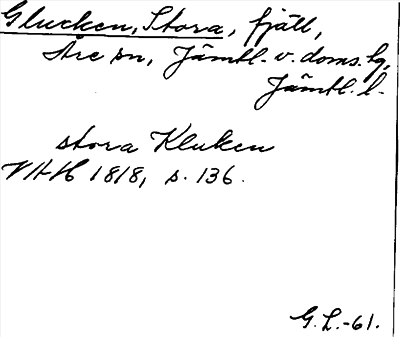 Glucken, Stora, fjäll,
Åre sn, Jämtl. v. doms.hg,
Jämtl. l.
stora Kluken
VAH 1818, s. 136.
G.L.-61.